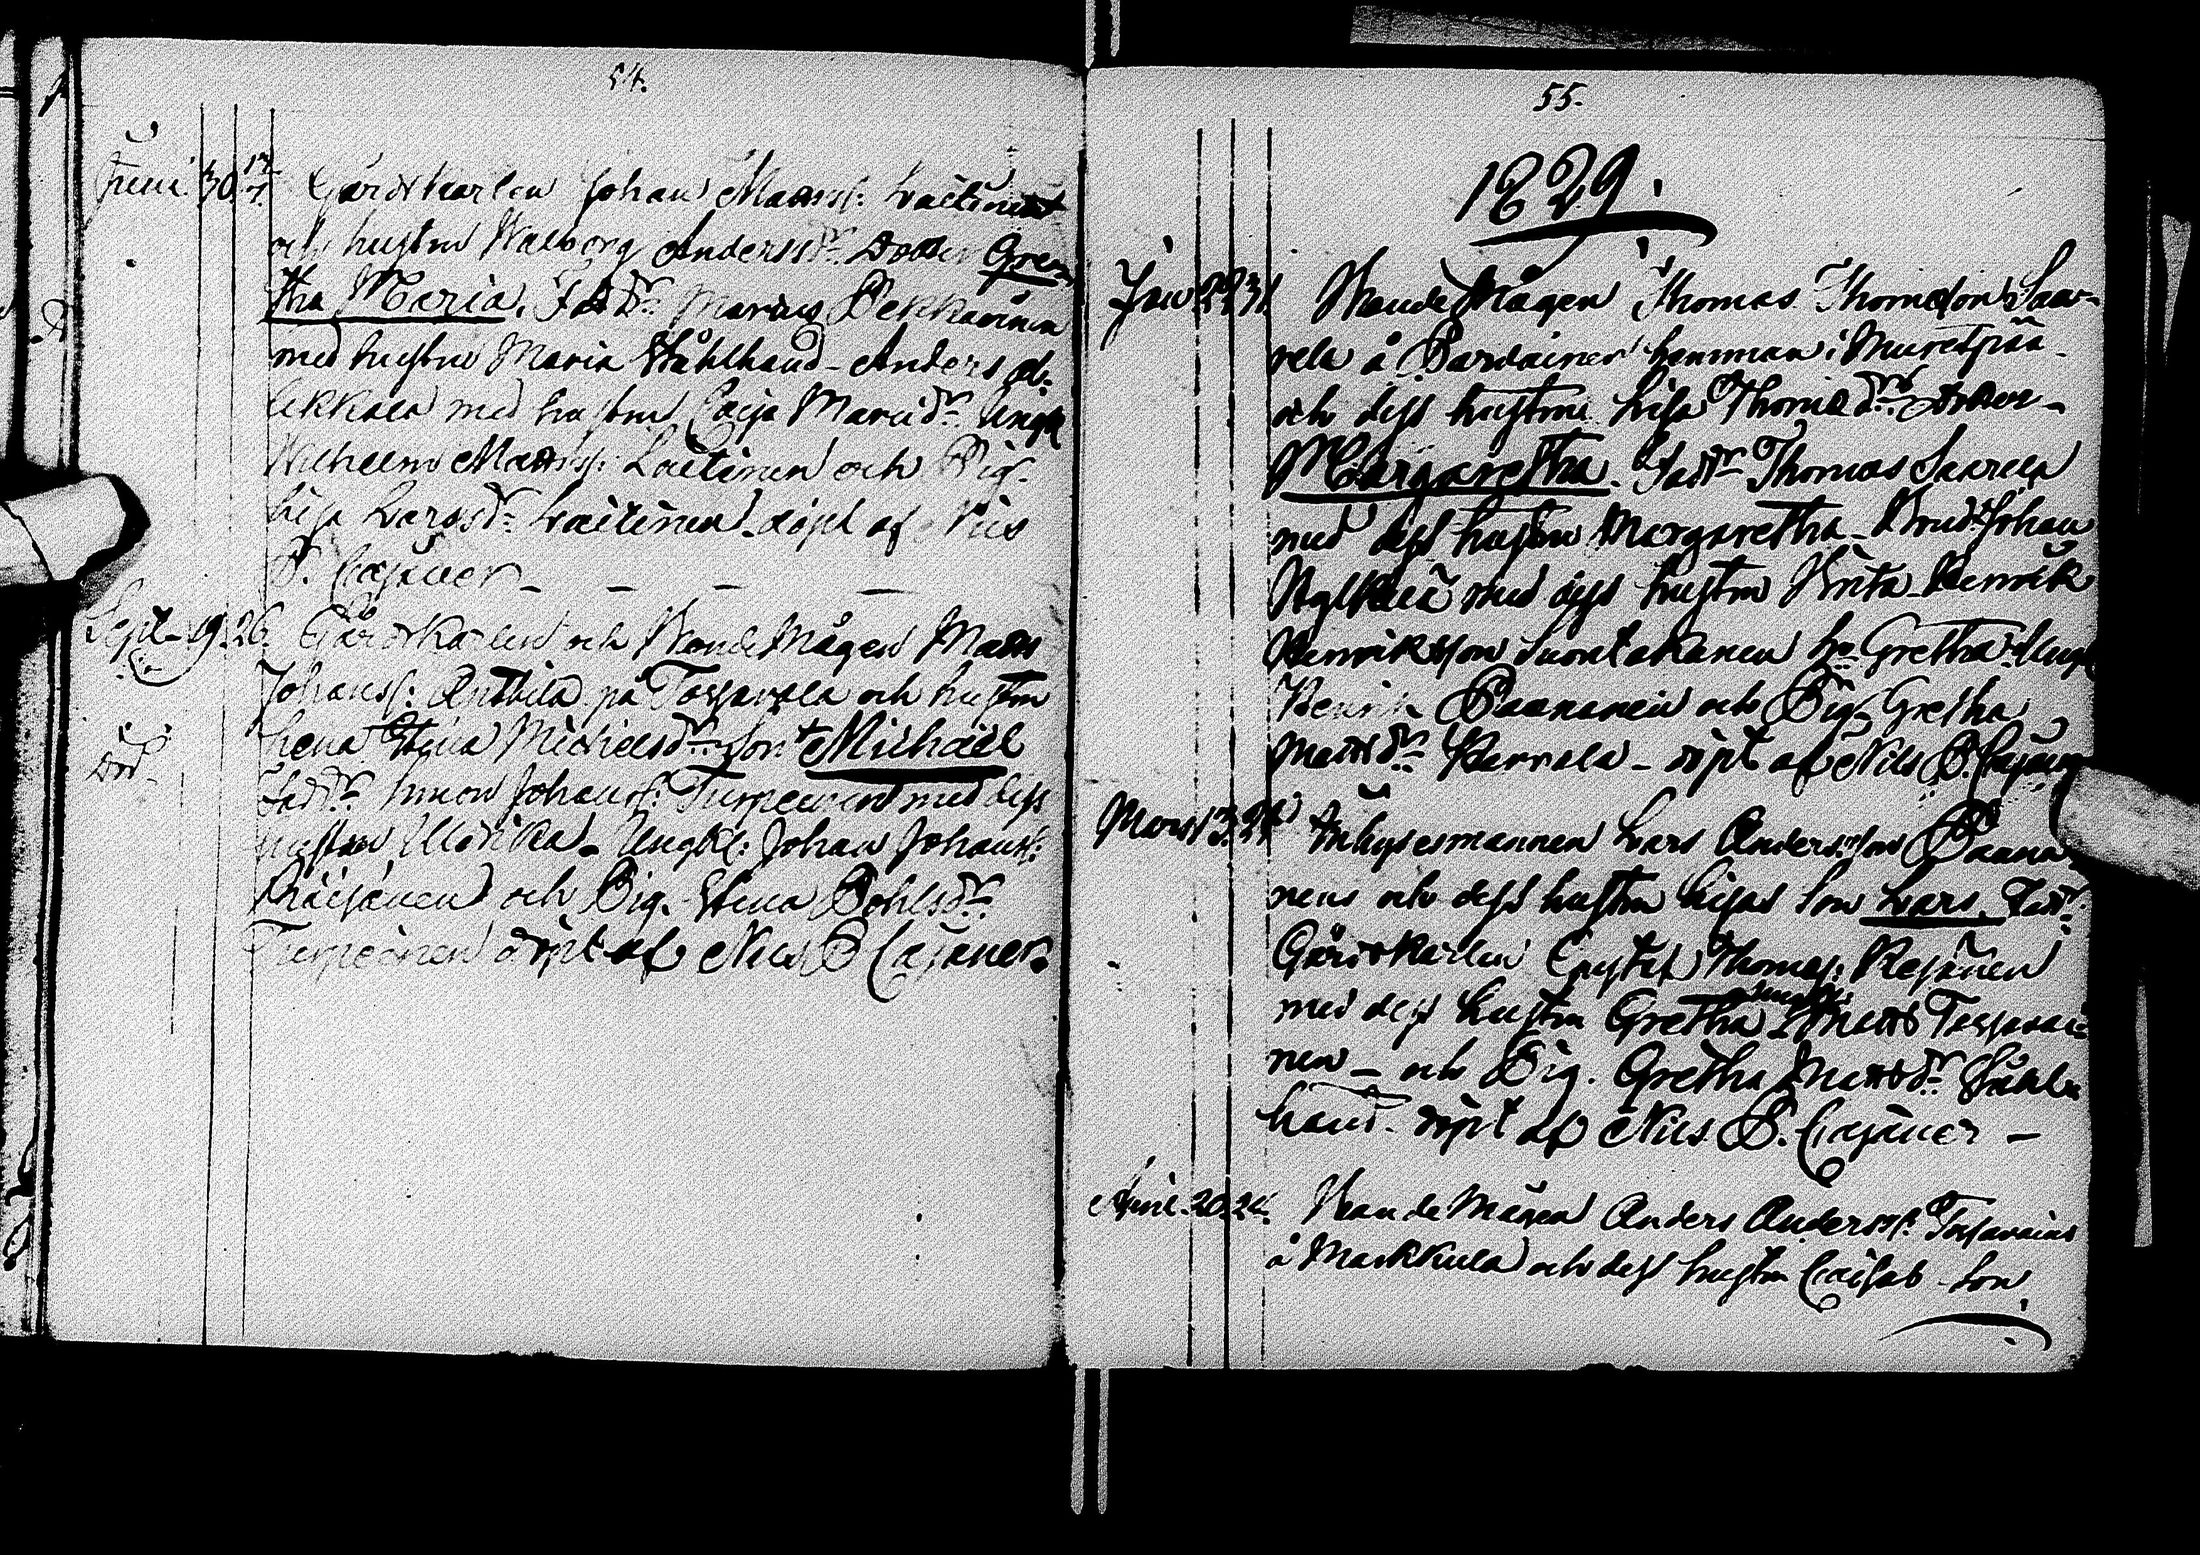 54.
Junii 30. 12/7. Gårdskarlen Johan Matss: Laitinen
och hustru Walborg Anderssdr Dotter Gre-
tha Maria. Faddr. Marcus Pekkarinen
med hustru Maria Ståhlhand - Anders
med hustru Caisa Marcidr. Ungk
Wilhelm Matss: Laitinen och Pig.
Lisa Larsdr Laitinen. döpt af Nils
P. Cajaner
Sept. 19. 26. Gårdskarlen och Bonde Mågen Matts
Johanss: Anttila på Tossavala och hustru
Lena Stina Michelsdr Son Michaël
död.
Faddr. Simon Johanss: Turpeinen med dess
hustru Ullrika. Ungk: Johan Johanss:
Räisänen och Pig. Stina Påhlsdr
Turpeinen döpt af Nils P Cajaner.
55.
1829.
Jan 29 31. Bonde Mågen Thomas Thomasson Saa-
rela å hemman i
och dess hustru Lisa Thomædrs Dotter
Margaretha. Faddr Thomas Saarela
med dess hustru Margaretha - Bond. Johan
med dess hustru Brita - Henrik
Henriksson Suontakanen h. Gretha - Ungk
Henrik Paananen och Pig. Gretha
Mattsdr Harvala - döpt af Nils P. Cajaner
Mars 13. Inhysesmannen Lars Andersson Paana-
nens och dess hustru Lisas Son Lars. Fadd:
Gårdskarlen Gustaf Thomass: Resänen
med dess hustru Gretha Matts Tossavai-
nen - och Pig. Gretha Mattsdr Ståhl-
hand. döpt af Nils P. Cajaner -
April. 20. 24. Bonde Mågen Anders Anderss: Tossavains
å Markkula och dess hustru Caisas - Son,